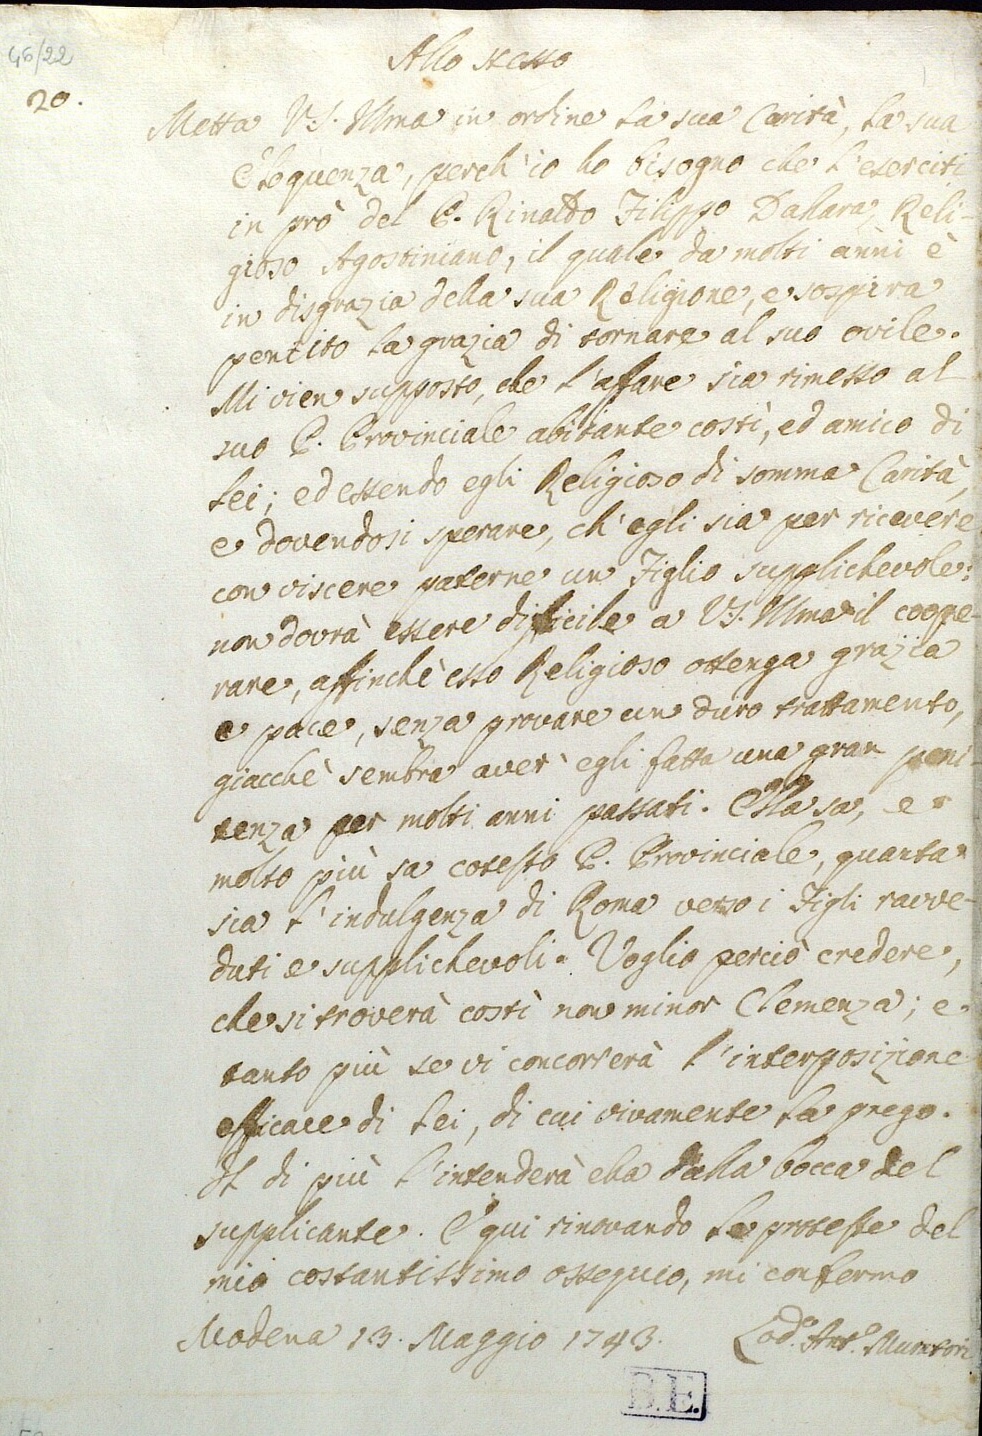 46/22
Allo stesso
20.
Metta V.S. Illma in ordine la sua Carità, la sua
Eloquenza, perch'io ho bisogno che l'eserciti
in prò del P. Rinaldo Filippo Dallara, Reli-
gioso Agostiniano, il quale da molti anni è
in disgrazia della sua Religione, e sospira
pentito la grazia di tornare al suo ovile.
Mi vien supposto, che l'affare sia rimesso al
suo P. Provinciale abitante costì, ed amico di
Lei; ed essendo egli Religioso di somma Carità,
e dovendosi sperare, ch'egli sia per ricevere
con viscere paterne un Figlio supplichevole:
non dovrà essere difficile a V.S. Illma il coope-
rare, affinchè esso Religioso ottenga grazia
e pace, senza provare un duro trattamento,
giacchè sembra aver egli fatta una gran peni-
tenza per molti anni passati. Ella sa, e
molto più sa cotesto P. Provinciale, quanta
sia l'indulgenza di Roma verso i Figli ravve-
duti e supplichevoli. Voglio perciò credere,
che si troverà costì non minor Clemenza; e
tanto più se vi concorrerà l'interposizione
efficace di Lei, di cui vivamente la prego.
Il di più l'intenderà ella dalla bocca del
supplicante. E qui rinovando le proteste del
mio costantissimo ossequio, mi confermo
Modena 13. Maggio 1743. Lod.º Ant.º Muratori
B.E.